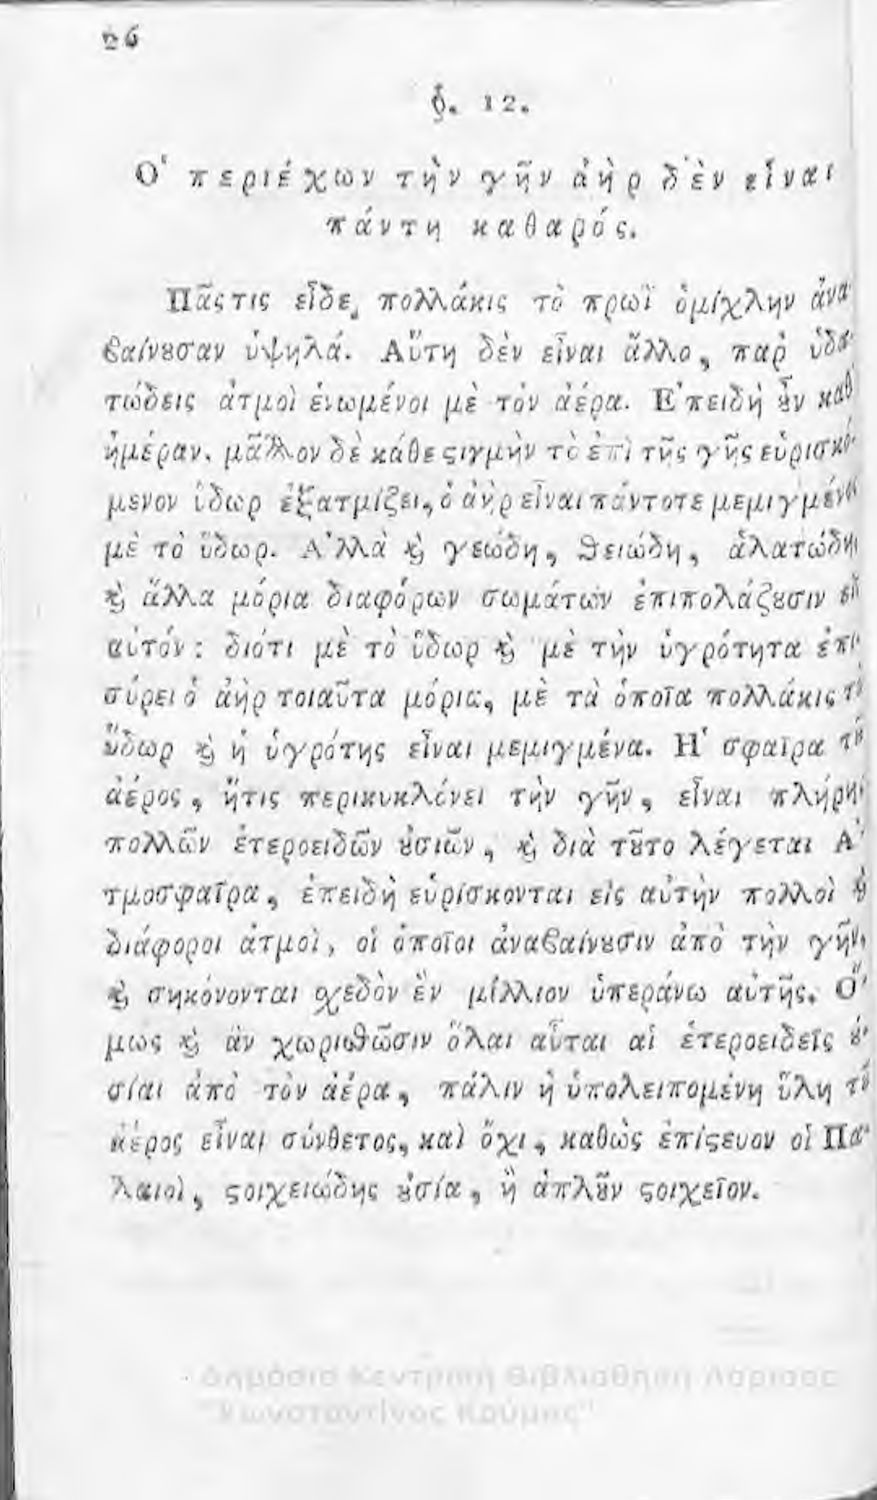 26
§. 12.
Ὁ περιέχων τὴν γῆν ἀὴρ δὲν εἶναι
πάντη καθαρός.
Πᾶς τις εἶδε, πολλάκις τὸ πρωῒ ὁμίχλην ἀνα-
βαίνȣσαν ὑψηλά. Αὕτη δὲν εἶναι ἄλλο, παρ' ὑδα-
τώδεις ἀτμοὶ ἑνωμένοι μὲ τὸν ἀέρα. Ἐπειδὴ ȣ̓͂ν καθ'
ἡμέραν, μᾶλλον δὲ κάθε ϛιγμὴν τὸ ἐπὶ τῆς γῆς εὑρισκό-
μενον ὕδωρ ἐξατμίζει, ὁ ἀὴρ εἶναι πάντοτε μεμιγμένος
μὲ τὸ ὕδωρ. Ἀλλὰ ϗ̀ γεώδη, θειώδη, ἁλατώδη,
ϗ̀ ἄλλα μόρια διαφόρων σωμάτων ἐπιπολάζȣσιν εἰς
αὐτόν: διότι μὲ τὸ ὕδωρ ϗ̀ μὲ τὴν ὑγρότητα ἐπι-
σύρει ὁ ἀὴρ τοιαῦτα μόρια, μὲ τὰ ὁποῖα πολλάκις τὸ
ὕδωρ ϗ̀ ἡ ὑγρότης εἶναι μεμιγμένα. Ἡ σφαῖρα τȣ͂
ἀέρος, ἥτις περικυκλόνει τὴν γῆν, εἶναι πλήρης
πολλῶν ἑτεροειδῶν ȣ̓σιῶν, ϗ̀ διὰ τȣ͂το λέγεται Ἀ-
τμοσφαῖρα, ἐπειδὴ εὑρίσκονται εἰς αὐτὴν πολλοὶ ϗ̀
διάφοροι ἀτμοὶ, οἱ ὁποῖοι ἀναβαίνȣσιν ἀπὸ τὴν γῆν,
ϗ̀ σηκόνονται σχεδὸν ἓν μίλλιον ὑπεράνω αὐτῆς. Ὅ-
μως ϗ̀ ἂν χωρισθῶσιν ὅλαι αὗται αἱ ἑτεροειδεῖς ȣ̓-
σίαι ἀπὸ τὸν ἀέρα, πάλιν ἡ ὑπολειπομένη ὕλη τȣ͂
ἀέρος εἶναι σύνθετος, καὶ ὄχι, καθὼς ἐπίϛευον οἱ Πα-
λαιοὶ, ϛοιχειώδης ȣ̓σία, ἢ ἁπλȣ͂ν ϛοιχεῖον.
Δημόσια Κεντρική Βιβλιοθήκη Λάρισας
"Κωνσταντίνος Κούμας"